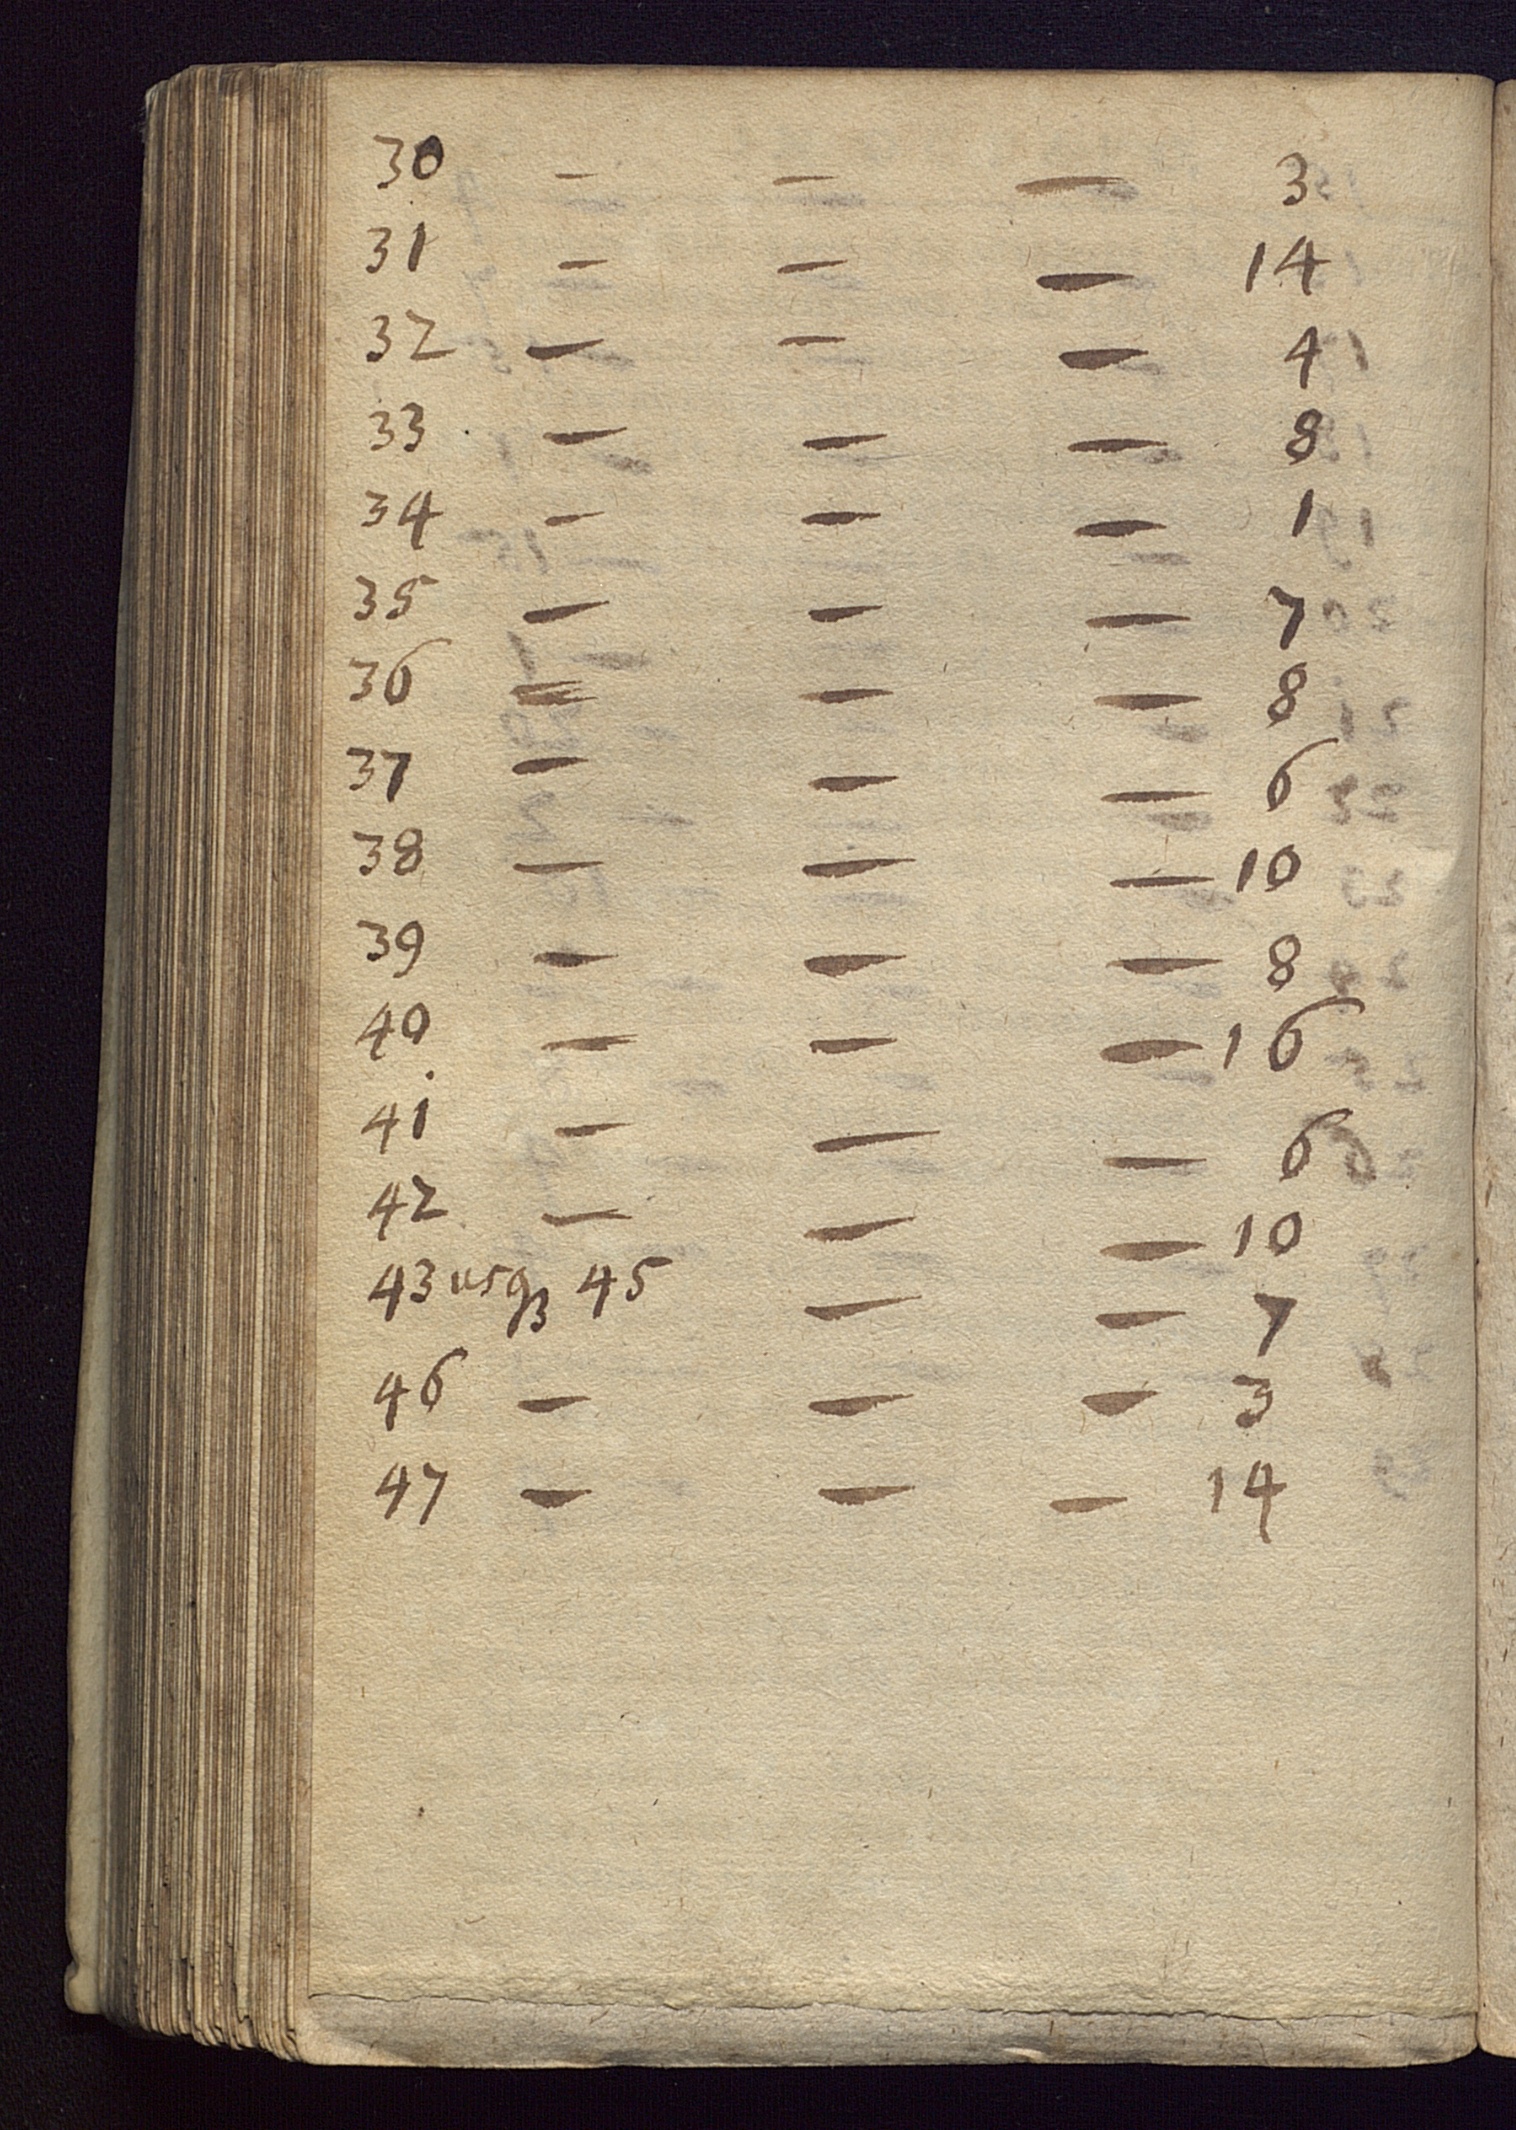 30 - - - 3
31 - - - 14
32 - - - 4
33 - - - 8
34 - - - 1
35 - - - 7
36 - - - 8
37 - - - 6
38 - - - 10
39 - - - 8
40 - - - 16
41 - - - 6
42 - - - 10
43 usqꝫ 45 - - 7
46 - - - 3
47 - - - 14